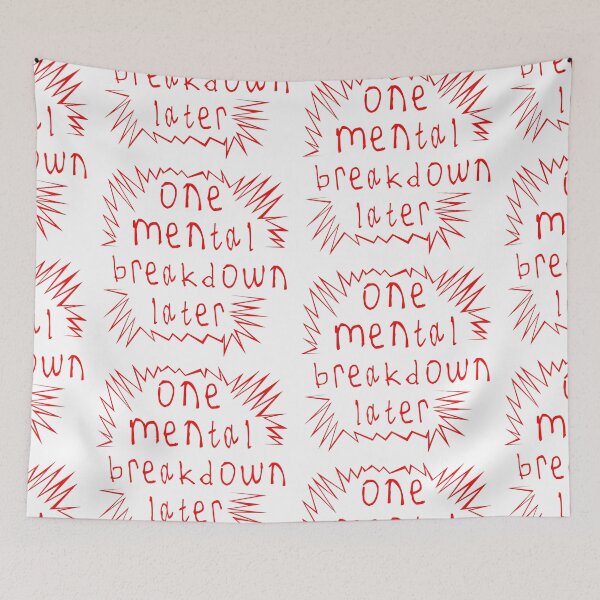 breakdown
later
one
mental
breakdown
later
one
mental
breakdown
later
one
mental
breakdown
later
one
mental
breakdown
later
one
mental
al
own
al
own
one
mental
breakdow
l
one
mental
breakdow